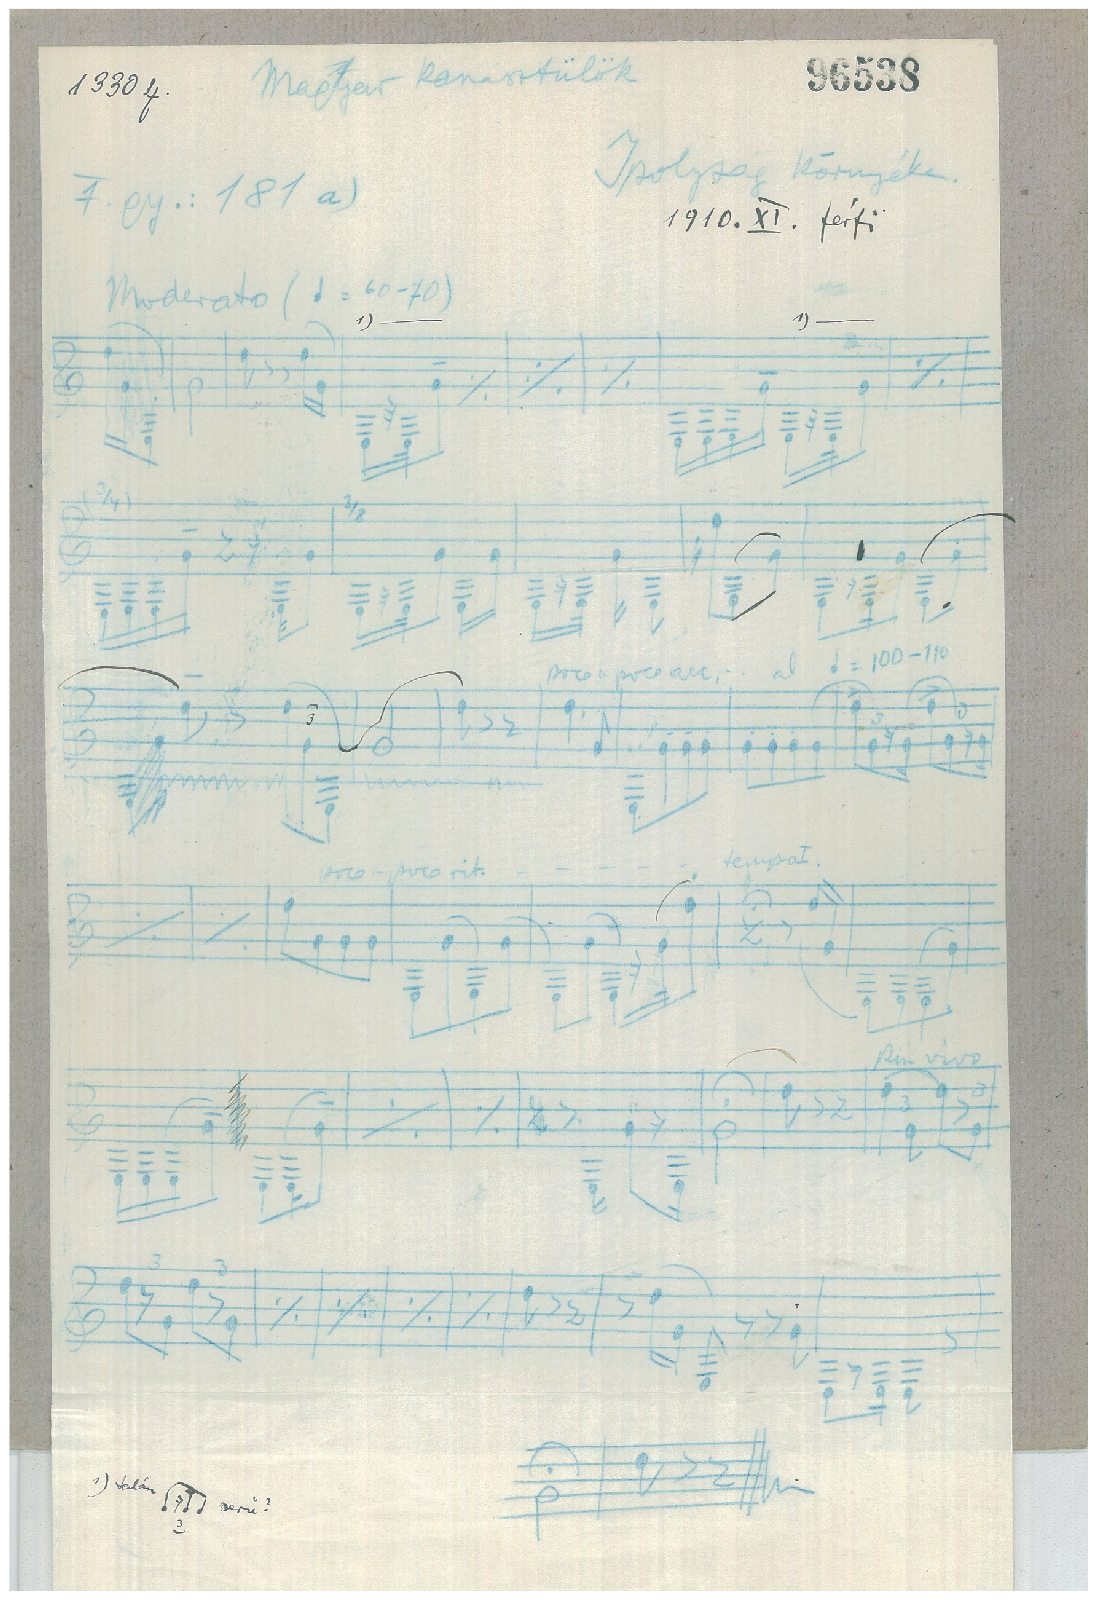 1330 f. Magyar kanásztülök 96538
Ipolyság környéke.
F. gy.: 181 a)
1910. XI. férfi
Moderato ( ♩ = 60-70)
1) 1)
(3/4) 3/8
poco a poco acc. . . al ♩ = 100-110
3 3 3
poco a poco rit. - - - - - tempo I.
Piu vivo
3 3
3 3
1) talán 3 nerü?